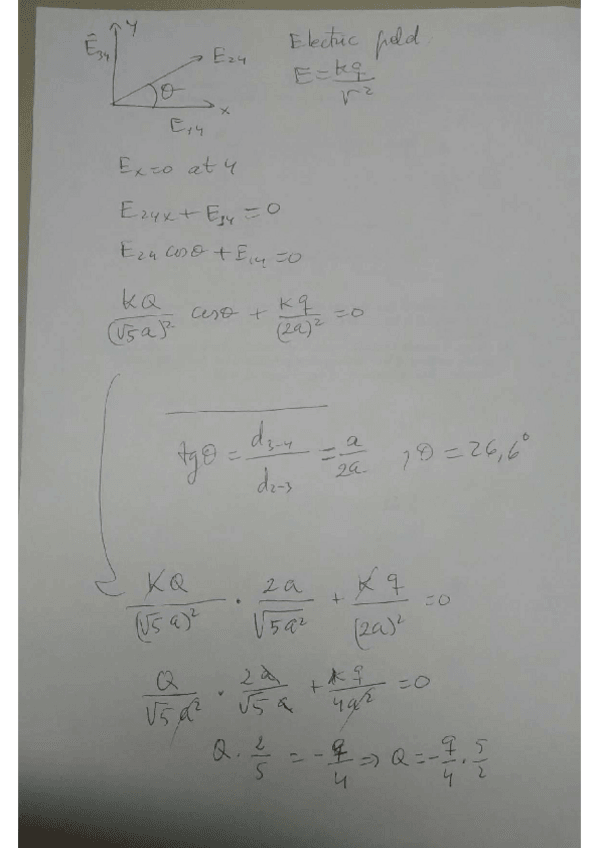 y
E⃗₃₄
E₂₄
θ
x
E₁₄
Electric field
E = kq/r²
Eₓ=0 at 4
E₂₄ₓ + E₁₄ = 0
E₂₄ cosθ + E₁₄ = 0
kQ/(√5a)² cosθ + kq/(2a)² = 0
tgθ = d₃₋₄/d₂₋₃ = a/2a , θ = 26,6°
KQ/(√5a)² · 2a/√5a² + Kq/(2a)² = 0
Q/√5a² · 2a/√5a + kq/4a² = 0
Q · 2/5 = -q/4 ⇒ Q = -q/4 · 5/2